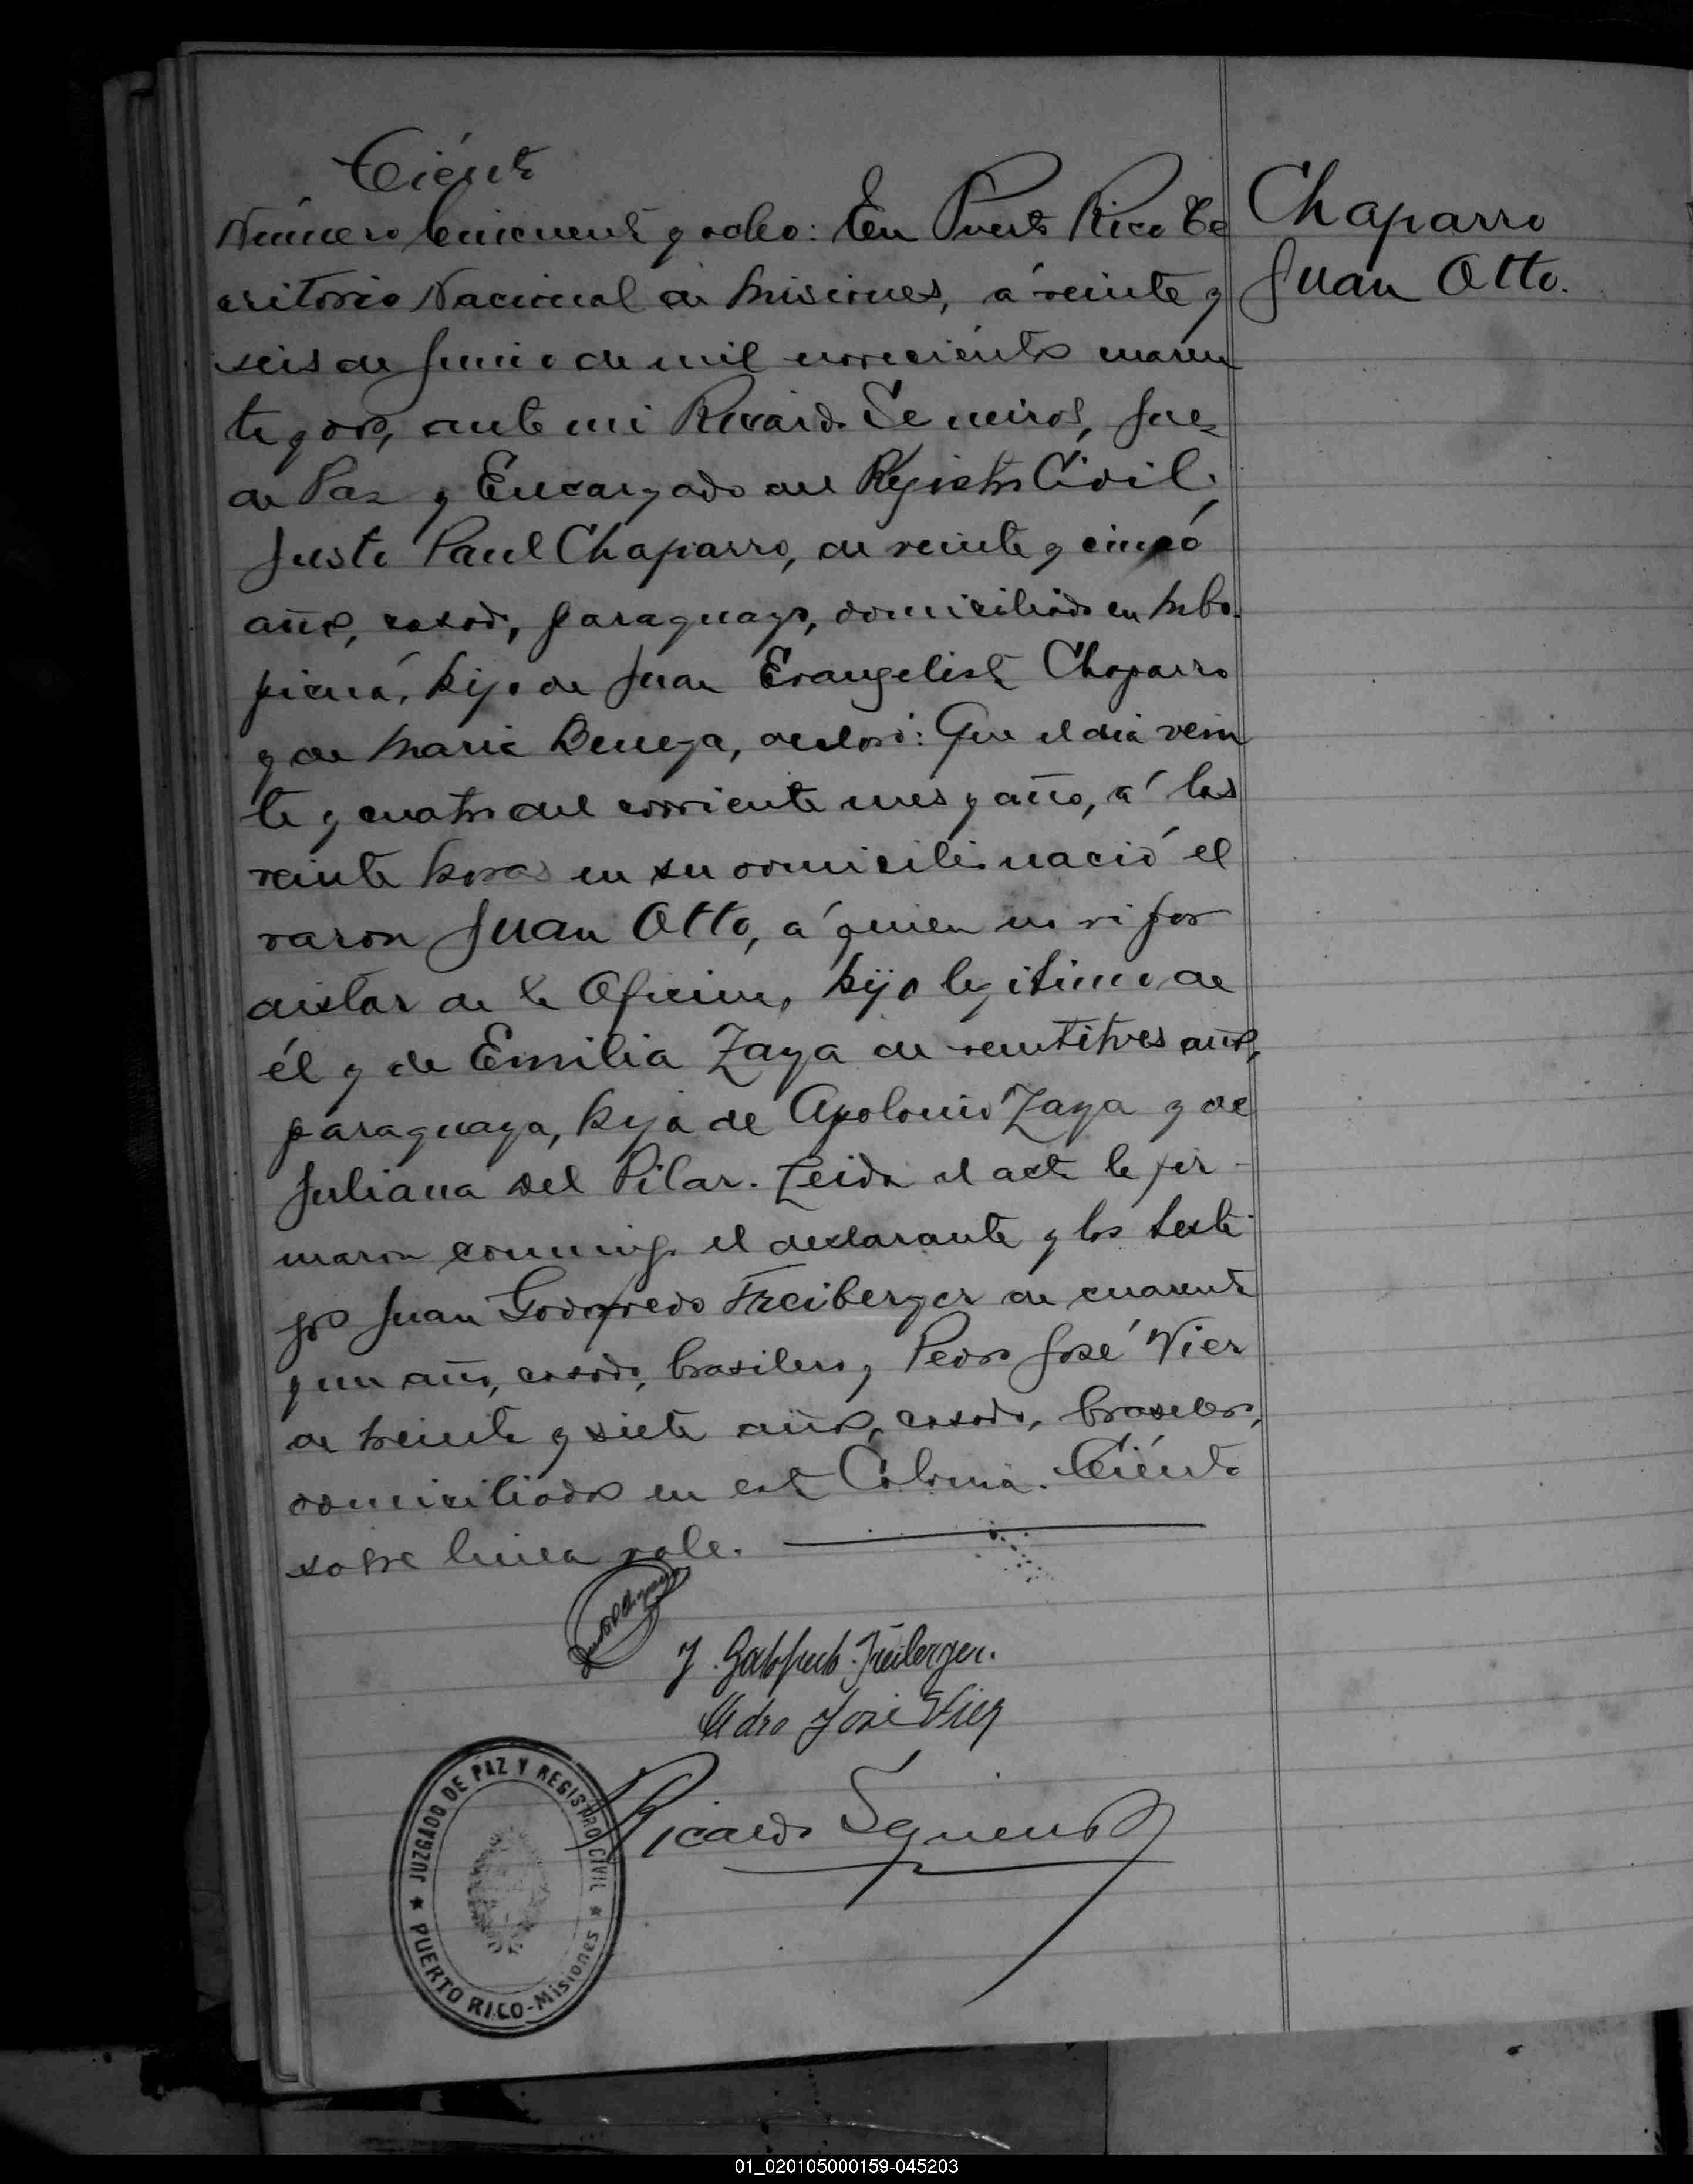 Ciento
Número Cincuenta y ocho: En Puerto Rico Te
rritorio Nacional de Misiones, á veinte y
seis de Junio de mil novecientos cuaren
ta y dos, ante mi Ricardo Seneiros, Juez
de Paz y Encargado del Registro Civil,
Justo Paul Chaparro, de veinte y cinco
años, casado, paraguayo, domiciliado en Mbo-
picuá, hijo de Juan Evangelista Chaparro
y de Maria Benega, declaró: Que el dia vein
te y cuatro del corriente mes y año, á las
veinte horas en su domicilio nació el
varon Juan Otto, á quien no vi por
distar de la Oficina, hijo legitimo de
él y de Emilia Zaya de veintitres años,
paraguaya, hija de Apolonio Zaya y de
Juliana del Pilar. Leida el acta la fir-
maron conmigo el declarante y los testi-
gos Juan Godofredo Freiberger de cuarenta
y un años, casado, brasilero y Pedro José Vier
de treinta y siete años, casado, brasilero,
domiciliados en esta Colonia. Ciento
sobre linea vale.
Chaparro
Juan Otto.
J. Gottfried Freiberger.
Pedro José Vier
Ricardo
JUZGADO DE PAZ Y REGISTRO CIVIL
PUERTO RICO-Misiones
01_020105000159-045203